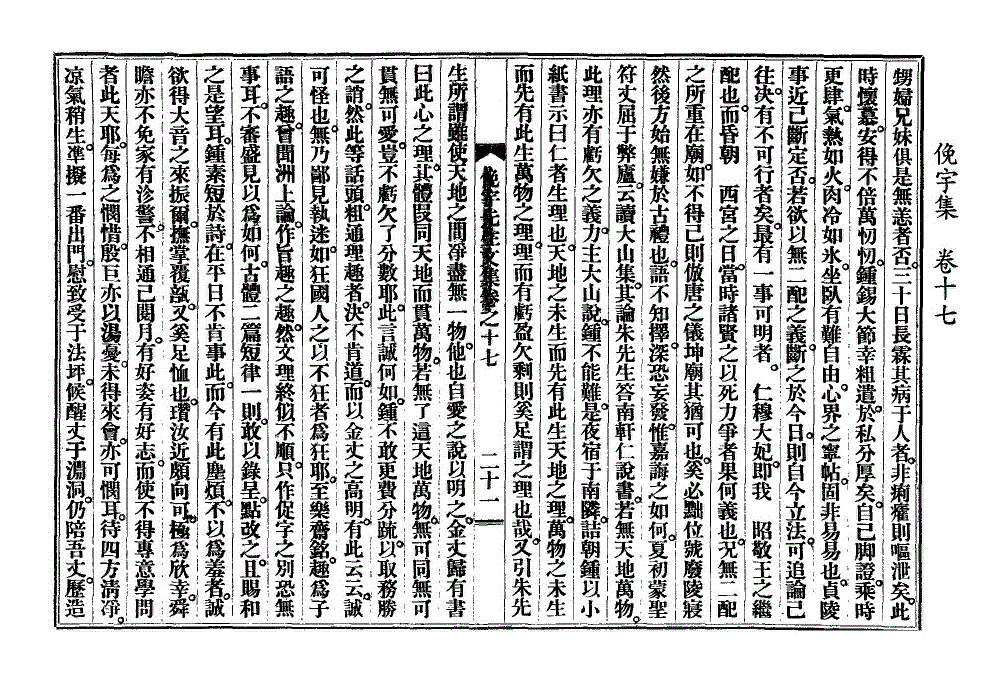 俛宇集 卷十七
甥婦兄妹俱是無恙者否。三十日長霖其病于人者。非痢瘧則嘔泄矣。此
時懷慕。安得不倍萬忉忉。鍾錫大節幸粗遣。於私分厚矣。自己脚證。乘時
更肆。氣熱如火。肉冷如氷。坐臥有難自由。心界之寧帖。固非易易也。貞陵
事近已斷定否。若欲以無二配之義。斷之於今日。則自今立法。可追論已
往。决有不可行者矣。最有一事可明者。 仁穆大妃。卽我 昭敬王之繼
配也。而昏朝 西宮之日。當時諸賢之以死力爭者。果何義也。况無二配
之所重在廟。如不得已則倣唐之儀坤廟其猶可也。奚必黜位號廢陵寢
然後方始無嫌於古禮也。語不知擇。深恐妄發。惟嘉誨之如何。夏初蒙聖
符丈屈于弊廬。云讀大山集。其論朱先生答南軒仁說書。若無天地萬物。
此理亦有虧欠之義。力主大山說。鍾不能難。是夜宿于南隣。詰朝鍾以小
紙書示曰仁者生理也。天地之未生而先有此生天地之理。萬物之未生
而先有此生萬物之理。理而有虧盈欠剩則奚足謂之理也哉。又引朱先
俛宇先生文集卷之十七 二十一
生所謂雖使天地之間凈盡無一物。他也自愛之說以明之。金丈歸有書
曰此心之理。其體段同天地而貫萬物。若無了這天地萬物。無可同無可
貫無可愛。豈不虧欠了分數耶。此言誠何如。鍾不敢更費分疏。以取務勝
之誚。然此等話頭。粗通理趣者。决不肯道。而以金丈之高明。有此云云。誠
可怪也。無乃鄙見執迷。如狂國人之以不狂者爲狂耶。至樂齋銘。趣爲子
語之趣。曾聞洲上論。作旨趣之趣。然文理終似不順。只作促字之別恐無
事耳。不審盛見以爲如何。古體二篇短律一則。敢以錄呈。點改之。且賜和
之是望耳。鍾素短於詩。在平日不肯事此。而今有此塵煩。不以爲羞者。誠
欲得大音之來振爾。撫掌覆瓿。又奚足恤也。瓚汝近頗向可。極爲欣幸。舜
瞻亦不免家有沴警。不相通已閱月。有好姿有好志。而使不得專意學問
者此天耶。每爲之憫惜。殷巨亦以湯憂。未得來會。亦可憫耳。待四方淸凈。
凉氣稍生。準擬一番出門。慰致受于法坪。候醒丈于淵洞。仍陪吾丈。歷造